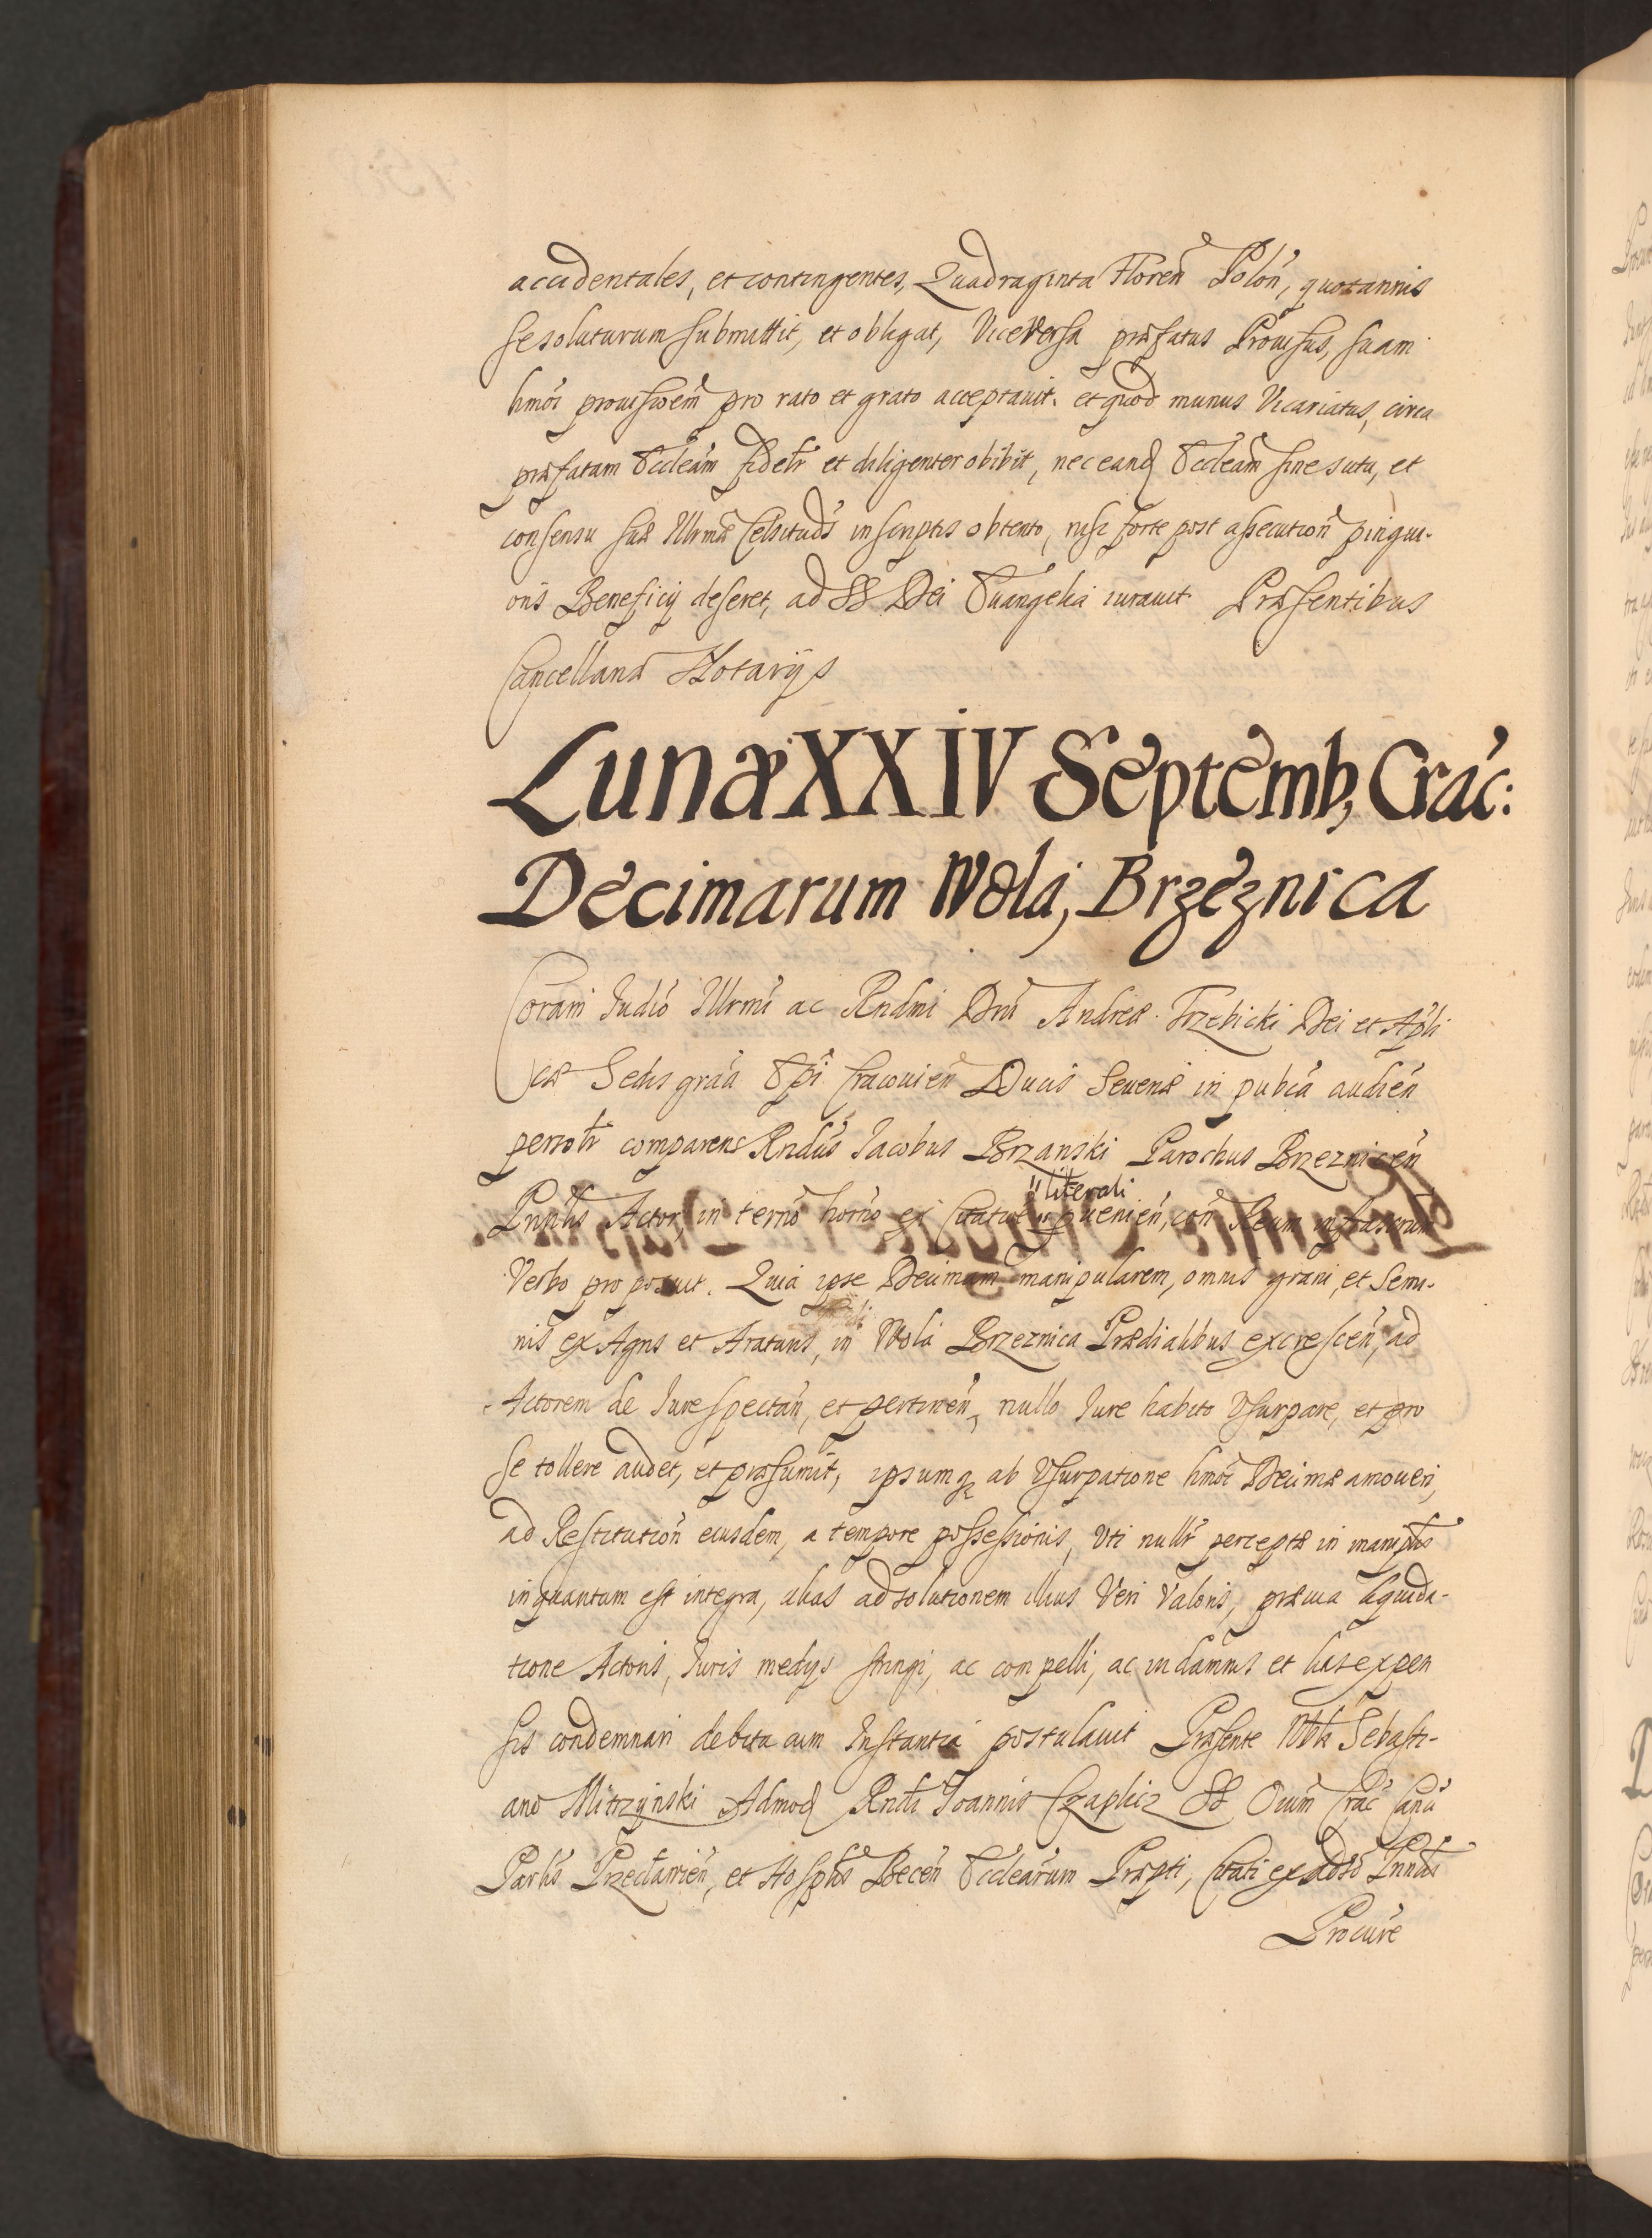 accidentales, et contingentes, Quadraginta Floreñ Poloń, quotannis
se soluturum submittit, et obligat, Vice Versa præfatus Prouisus, suam
hmoi prouisioem̃ pro rato et grato acceptauit. et quod munus Vicariatus, circa
præfatam Eccleam̃ fidelr̃ et diligenter obibit, nec eand Eccleam̃ sine scitu, et
consensu suæ Illrmæ Celsitud̃s in scriptis obtento, nisi forte post assecutioñ pingui-
oris Beneficij deseret, ad SS Dei Euangelia iurauit. Præsentibus
Cancellariæ Notarijs
Lunæ XXIV Septemb, Crac:
Decimarum Wola, Brzeznica
Coram Iudio Illrmi ac Rndmi Dñi Andreæ Trzebicki Dei et Apli
cæ Sedis grãa Epĩ Cracouień Ducis Seueriæ in publca audień
persolr̃ comparens Rndus Iacobus Brzanski Parochus Brzezniceń
literali
Prińlis Actor, in termo horno ex Citatõe " pueniéń, con Reum infrascriptum
Verbo proposuit. Quia ipse Decimam manipularem, omnis grani, et Semi-
nis ex Agris et Araturis, in Wola Brzeznica Prædialibus excresceń, ad
Actorem de Iure spectań, et pertineń, nullo Iure habito Vsurpare, et pro
se tollere audet, et præsumit, ipsumq ab Vsurpatione hmoi Decimæ amoueri,
ad Restitutioñ eiusdem, a tempore possessionis, Vti nullr̃ perceptæ in manipłis
inquantum est integra, alias ad solutionem illius Veri Valoris, præuia liquida-
tione Actoris, Iuris medijs stringi, ac compelli, ac in damnis et litis expen
sis condemnari debita cum Instantia postulauit Præsente Nbłi Sebasti-
ano Mitrzynski Admod Rndi Ioannis Czaplicz SS Oium̃ Crac Canci
Parlis Przeclawień, et Hosplis Beceń Ecclearum Præpti, Citati ex aduso Prinlis
Procure